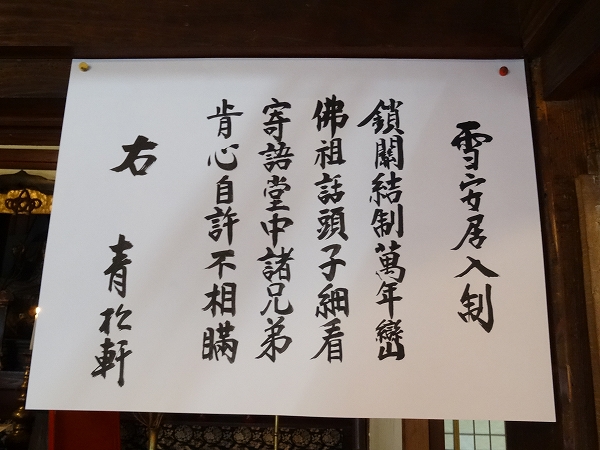 雪安居入制
鎖關結制萬年巒
佛祖話頭子細看
寄語堂中諸兄弟
肯心自許不相瞞
右 青松軒